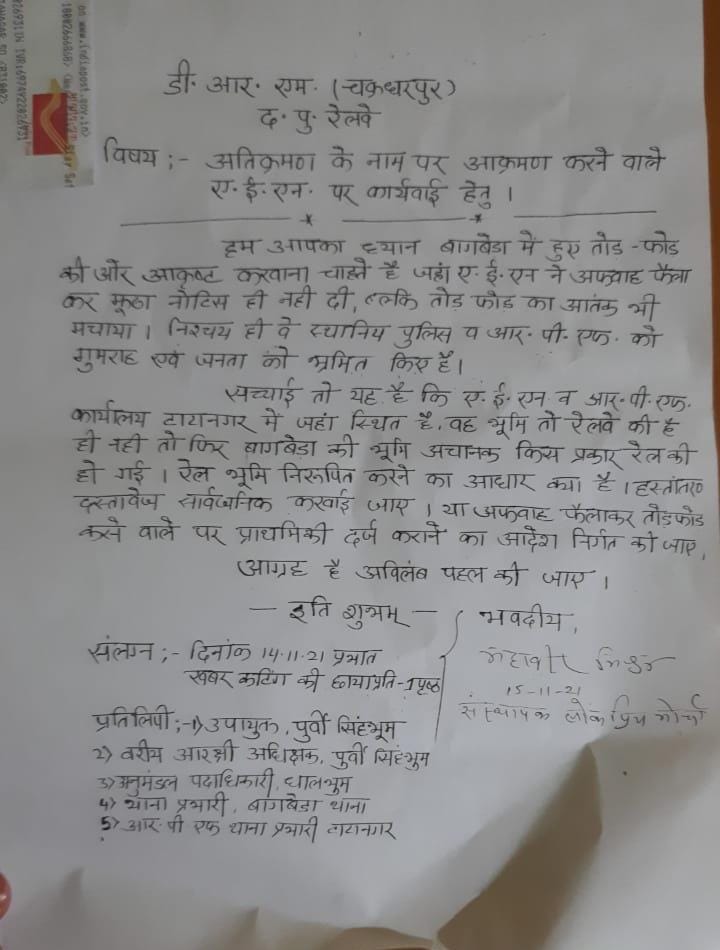 on www.indiapost.gov.in>
डी. आर. एम. (चक्रधरपुर)
द. पु. रेलवे
विषय ;- अतिक्रमण के नाम पर आक्रमण करने वाले
ए. ई. एन. पर कार्यवाई हेतु ।
हम आपका ध्यान बागबेडा में हुए तोड़-फोड
की ओर आकृष्ट करवाना चाहते है जहां ए. ई. एन ने अफवाह फैला
कर झूठा नोटिस ही नही दी, बल्कि तोड फोड का आतंक भी
मचाया । निश्चय ही वे स्थानिय पुलिस व आर. पी. एफ. को
गुमराह एवं जनता को भ्रमित किए है।
सच्चाई तो यह है कि ए. ई. एन व आर. पी. एफ.
कार्यालय टाटानगर में जहां स्थित है, वह भूमि तो रेलवे की है
ही नही तो फिर बागबेडा की भूमि अचानक किस प्रकार रेल की
हो गई । रेल भूमि निरूपित करने का आधार क्या है । हस्तांतरण
दस्तावेज सार्वजनिक करवाई जाए । या अफवाह फैलाकर तोडफोड
करने वाले पर प्राथमिकी दर्ज कराने का आदेश निर्गत की जाए,
आग्रह है अविलंब पहल की जाए ।
— इति शुभम् —
भवदीय,
संलग्न ;- दिनांक 14.11.21 प्रभात
खबर कटिंग की छायाप्रति-1पृष्ठ
महावीर
15-11-21
संस्थापक लोक प्रिय मोर्चा
प्रतिलिपी ;-1) उपायुक्त, पुर्वी सिंहभूम
2) वरीय आरक्षी अधिक्षक, पुर्वी सिंहभुम
3) अनुमंडल पदाधिकारी, धालभुम
4) थाना प्रभारी, बागबेडा थाना
5) आर. पी एफ थाना प्रभारी टाटानगर